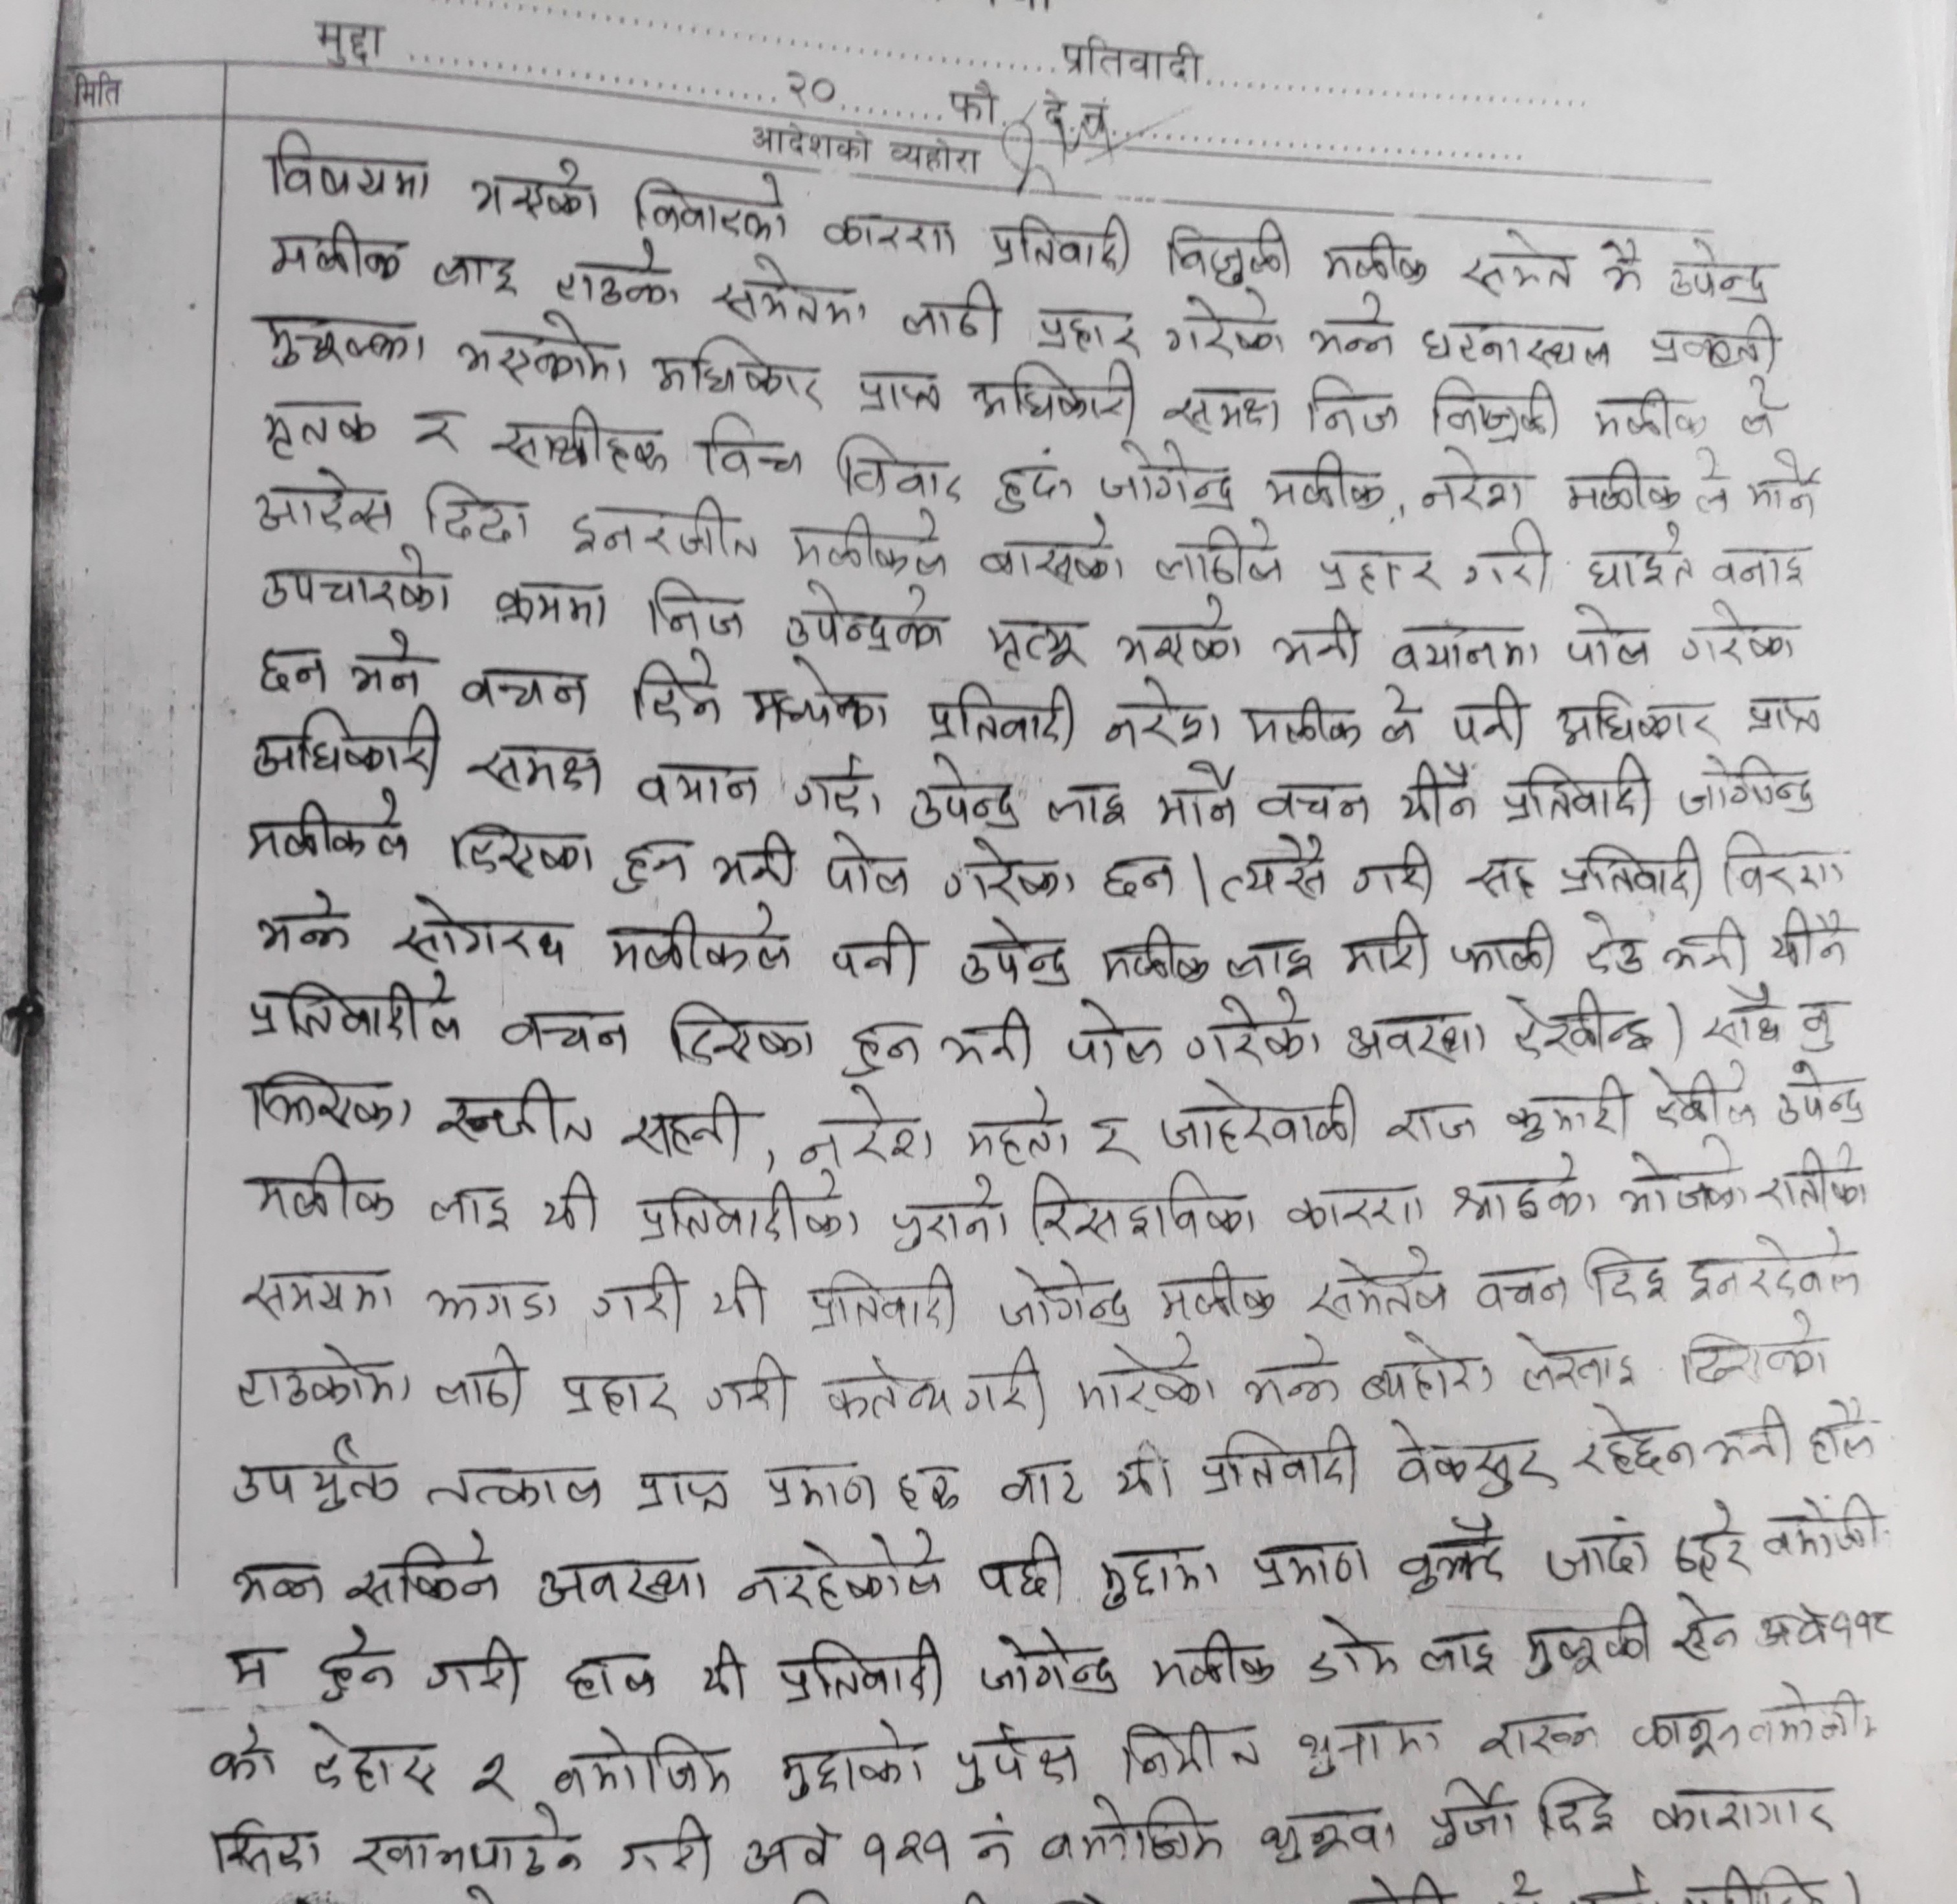 मुद्दा ........ प्रतिवादी........
मिति
२० ........ फौ. दे.नं.
आदेशको व्यहोरा
विषयमा भएको विवादको कारण प्रतिवादी विजुली मलीक समेत भै उपेन्द्र
मलीक लाइ टाउको समेतमा लाठी प्रहार गरेको भन्ने घटनास्थल प्रकृती
मुचुल्का भएकोमा अधिकार प्राप्त अधिकारी समक्ष निज विजुली मलीक ले
मृतक र साथीहरु विच विवाद हुदा जोगेन्द्र मलीक, नरेश मलीक ले मार्ने
आदेस दिदा इनरजीत मलीकले बासको लाठीले प्रहार गरी घाइते वनाइ
उपचारको क्रममा निज उपेन्द्रको मृत्यू भएको भनी वयानमा पोल गरेका
छन भने वचन दिने मध्येका प्रतिवादी नरेश मलीक ले पनी अधिकार प्राप्त
अधिकारी समक्ष वयान गर्दा उपेन्द्र लाइ मार्ने वचन यीनै प्रतिवादी जोगेन्द्र
मलीकले दिएका हुन भनी पोल गरेका छन । त्यसै गरी सह प्रतिवादी
भन्ने मलीकले पनी उपेन्द्र मलीक लाइ मारी फाली देउ भनी यीनै
प्रतिवादीले वचन दिएका हुन भनी पोल गरेको अवस्था देखीन्छ । साथै वु
झिएका रन्जीत सहनी, नरेश महतो र जाहेरवाली राज कुमारी देवीले उपेन्द्र
मलीक लाइ यी प्रतिवादीको पुरानो रिसइविका कारण श्राद्धको भोजको रातीको
समयमा झगडा गरी यी प्रतिवादी जोगेन्द्र मलीक समेतले वचन दिइ इनरदेवले
टाउकोमा लाठी प्रहार गरी कर्तव्य गरी मारेको भन्ने व्यहोरा लेखाइ दिएको
उपर्युक्त तत्काल प्राप्त प्रमाण हरु वाट यी प्रतिवादी वेकसुर रहेछन भनी हालै
भन्न सकिने अवस्था नरहेकोले पछी मुद्दामा प्रमाण वुझ्दै जादा ठहरे वमोजी
म हुने गरी हाल यी प्रतिवादी जोगेन्द्र मलीक डोम लाइ मुलूकी ऐन अवे ११८
को देहाय २ वमोजिम मुद्दाको पुर्पक्ष निमीत थुनामा राख्न कानून वमोजीम
सिदा खानपाउने गरी अवे १२१ नं वमोजिम थुनुवा पुर्जी दिइ कारागार